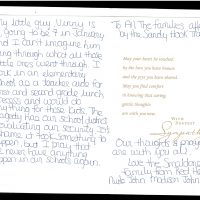 My little guy, Vinny is
going to be 7 in January
and I can't imagine him
going through what all those
little ones went through. I
work in an elementary
school as a teacher aide for
first and second grade lunch
recess and would do
anything for those kids. The
tragedy has our school district
reevaluating our security. It's
shame it took something to
happen, but I pray that
never have anything
happen in our schools again.
To All The families affected
by the Sandy Hook
May your heart be touched
by the love you have known
and the joys you have shared.
May you find comfort
in knowing that caring,
gentle thoughts
are with you now.
With Deepest
Sympathy
Our thoughts & prayers
are with you all.
Love the
family from Red
John Madison John